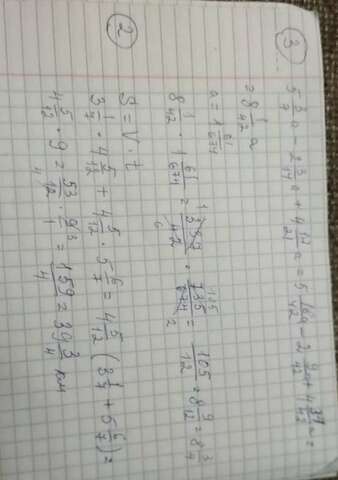 ③
5 3/7 a − 2 3/14 a + 4 17/21 a = 5 18/42 a − 2 9/42 a + 4 34/42 a =
= 8 1/42 a
a = 1 61/674
8 1/42 · 1 61/674 = 337/42 · 735/674 = 105/12 = 8 9/12 = 8 3/4
②
S = V · t
3 1/7 · 4 5/12 + 4 5/12 · 5 6/7 = 4 5/12 (3 1/7 + 5 6/7) =
4 5/12 · 9 = 53/12 · 9/1 = 159/4 = 39 3/4 км